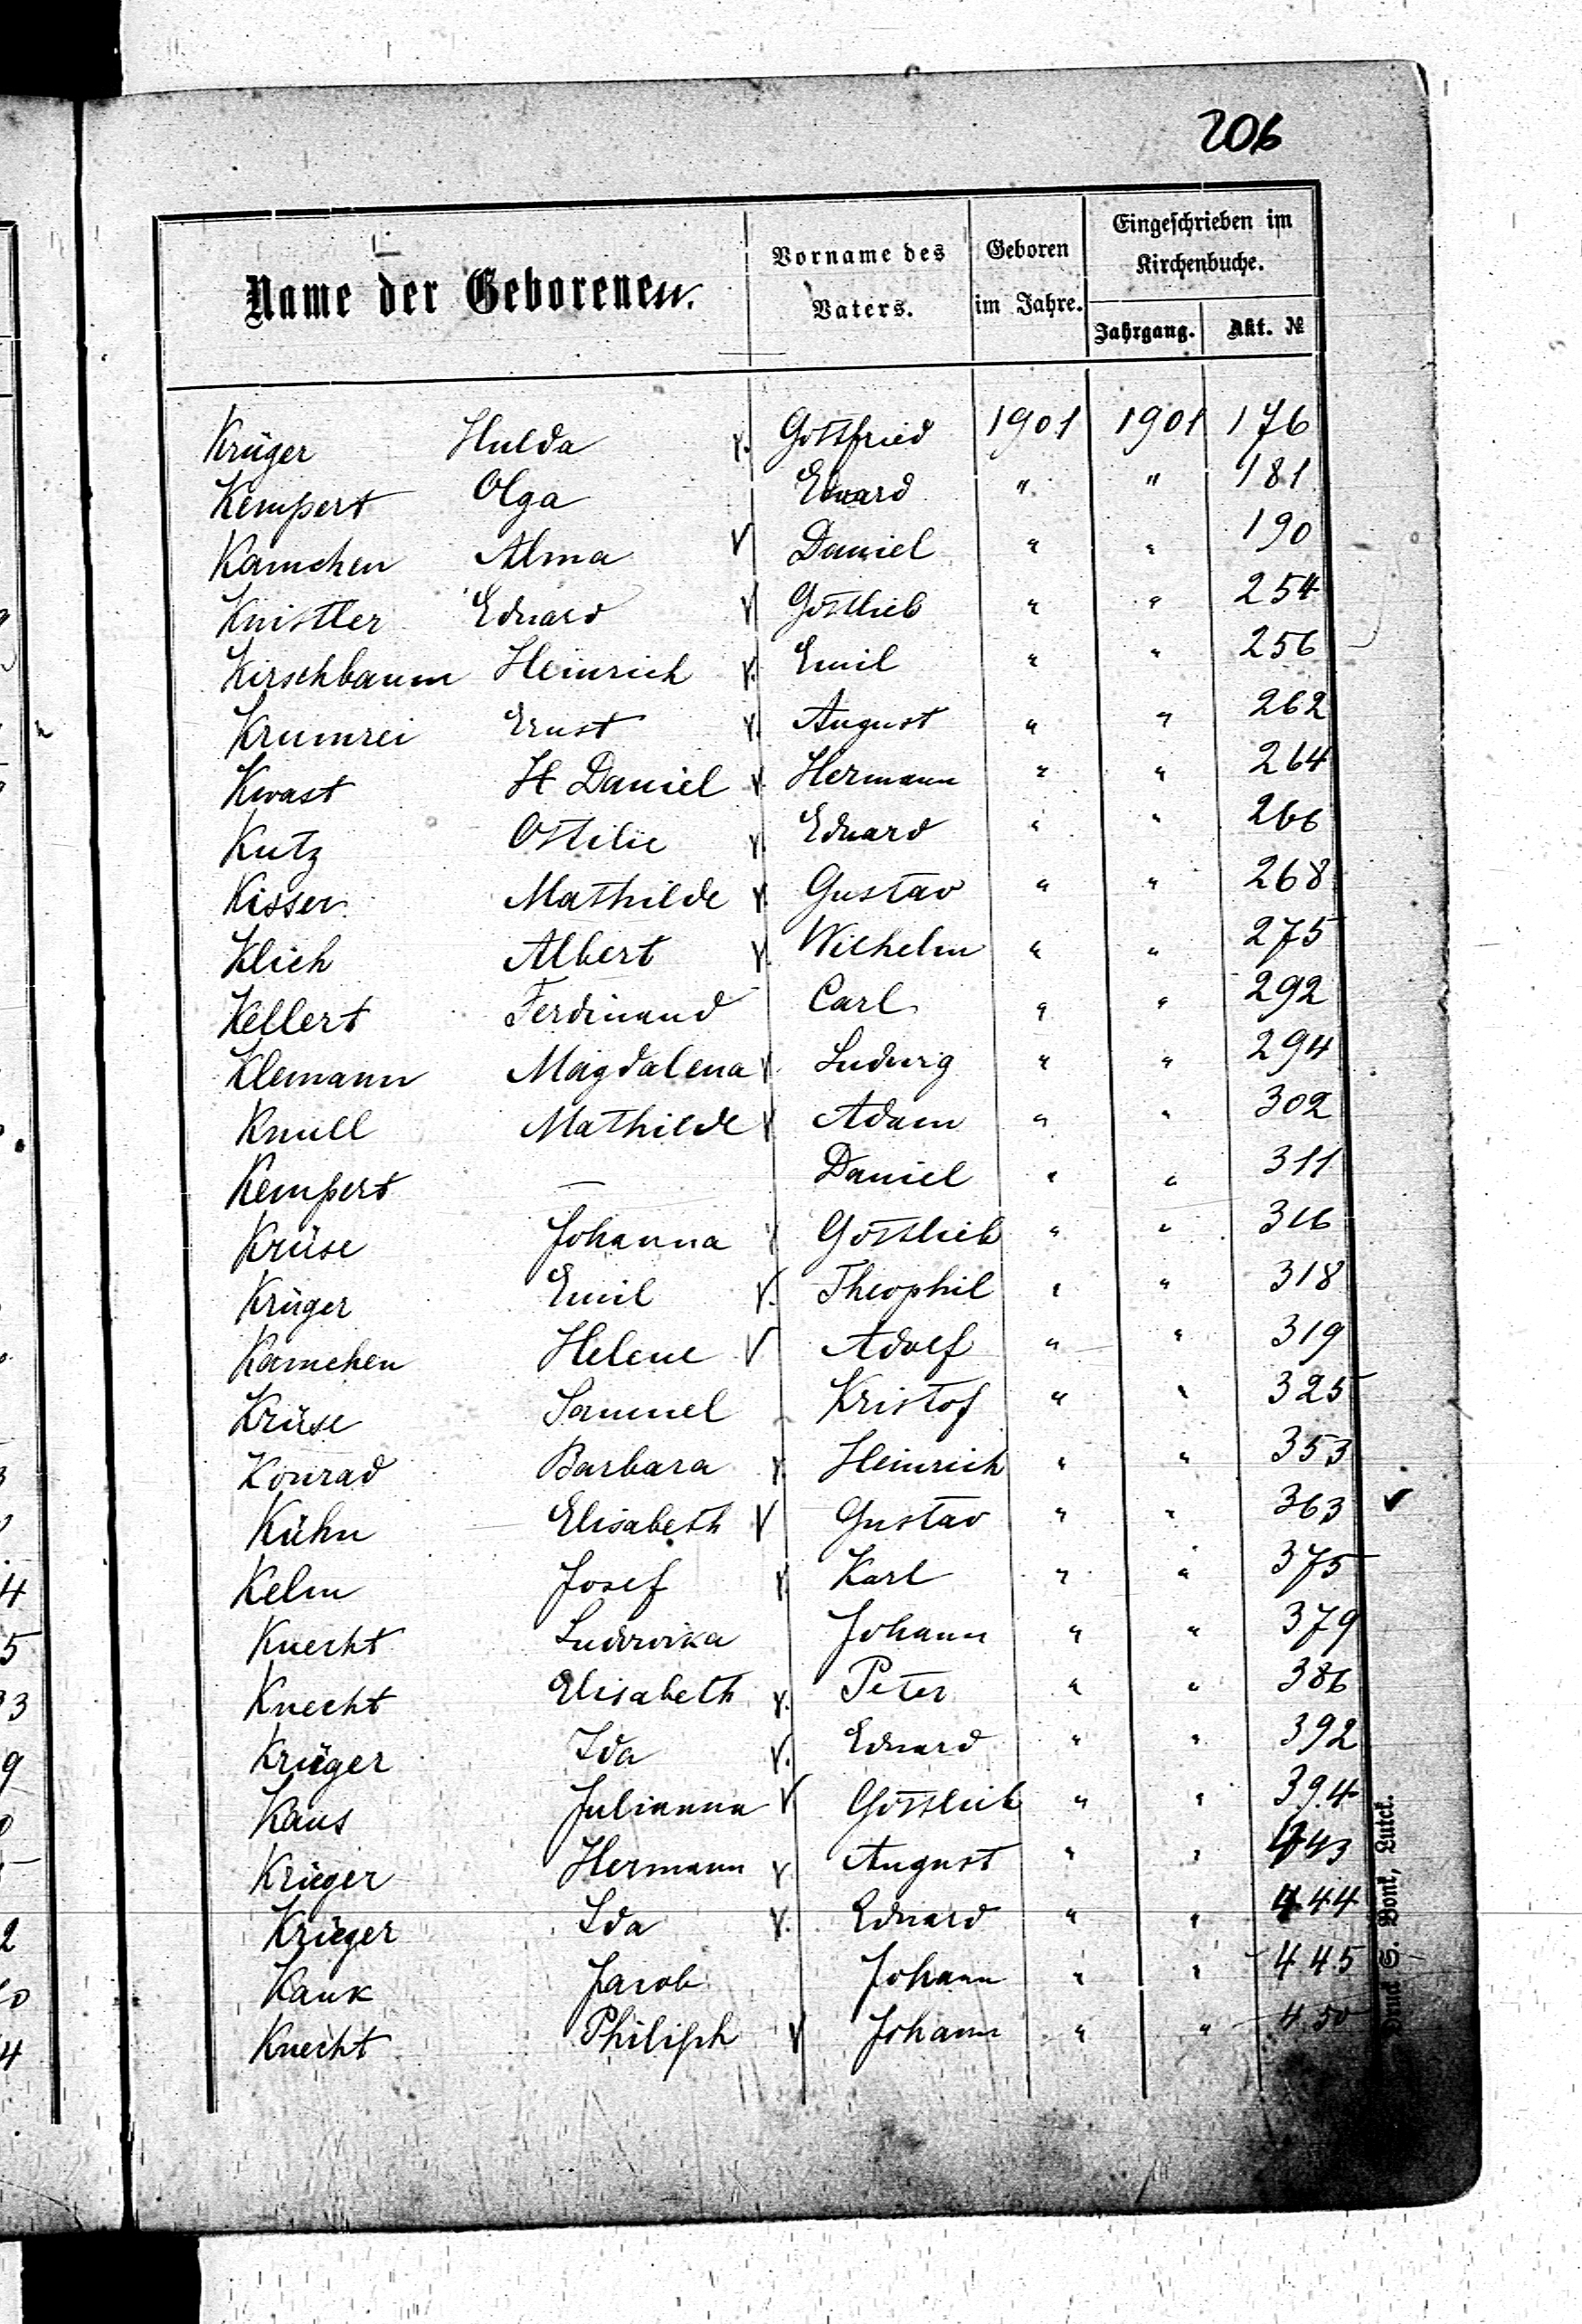 206
Name der Geborenen. Vorname des Vaters. Geboren im Jahre. Eingeschrieben im Kirchenbuche.
Jahrgang. Akt. №
Krüger Hulda Gottfried 1901 1901 176
Kempert Olga Eduard " " 181
Kamchen Alma Daniel " " 190
Knistler Eduard Gottlieb " " 254
Kirschbaum Heinrich Emil " " 256
Krumrei Ernst August " " 262
Kwast H Daniel Hermann " " 264
Kutz Ottilie Eduard " " 266
Kisser Mathilde Gustav " " 268
Klich Albert Wilhelm " " 275
Kellert Ferdinand Carl " " 292
Klemann Magdalena Ludwig " " 294
Knull Mathilde Adam " " 302
Kempert — Daniel " " 311
Krüse Johanna Gottlieb " " 316
Krüger Emil Theophil " " 318
Kamchen Helene Adolf " " 319
Krüse Samuel Kristof " " 325
Konrad Barbara Heinrich " " 353
Kühn Elisabeth Gustav " " 363 ✓
Kelm Josef Karl " " 375
Knecht Ludovika Johann " " 379
Knecht Elisabeth Peter " " 386
Krüger Ida Eduard " " 392
Kaus Julianna Gottlieb " " 394
Krüger Hermann August " " 443
Krüger Ida Eduard " " 444
Kauk Jacob Johann " " 445
Knecht Philiph Johann " " 450
Druck S. Bonk, Lutck.